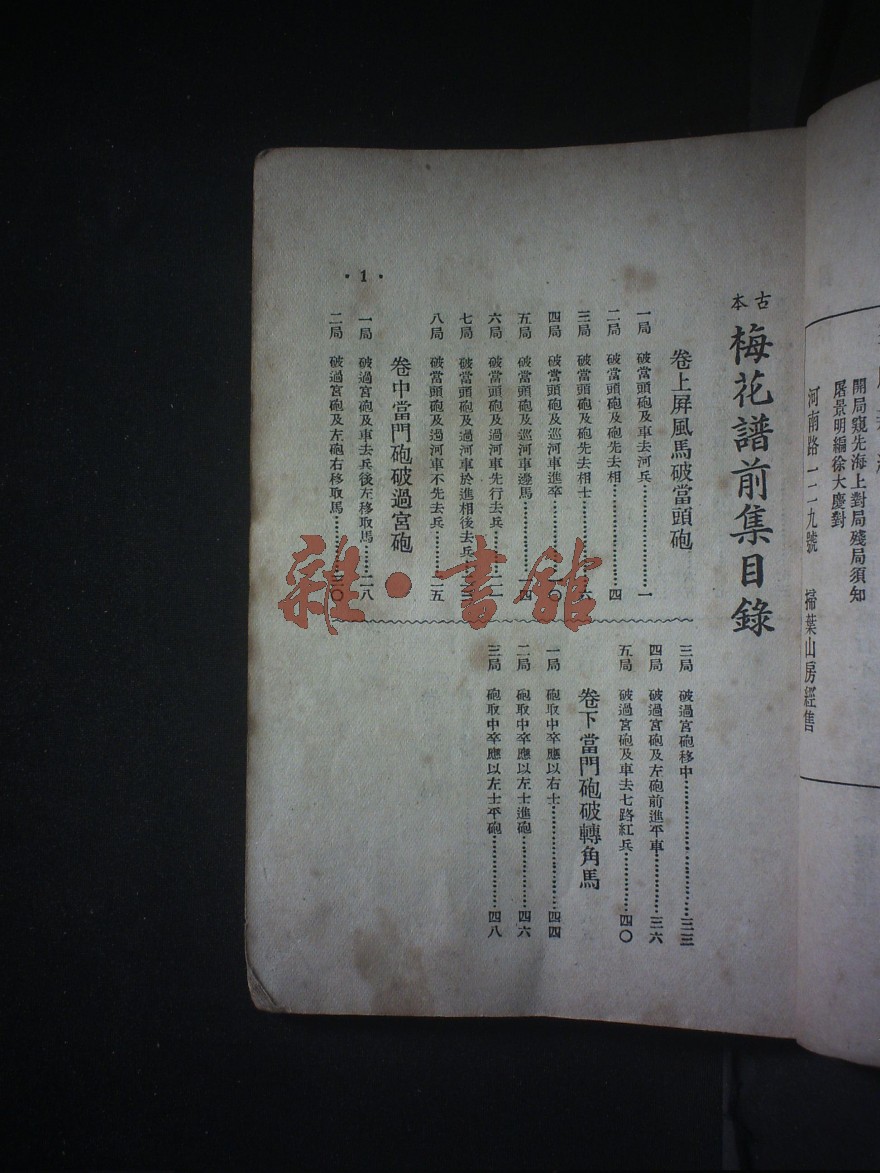 開局窺先海上對局殘局須知
屠景明編徐大慶對
河南路一一二九號 掃葉山房經售
古本
梅花譜前集目錄
卷上屏風馬破當頭砲
一局 破當頭砲及車去河兵……………一
二局 破當頭砲及砲先去相……………四
三局 破當頭砲及砲先去相士…………六
四局 破當頭砲及巡河車進卒…………一〇
五局 破當頭砲及巡河車邊馬…………一四
六局 破當頭砲及過河車先行去兵……二一
七局 破當頭砲及過河車於進相後去兵…二三
八局 破當頭砲及過河車不先去兵……二五
卷中當門砲破過宮砲
一局 破過宮砲及車去兵後左移取馬……二八
二局 破過宮砲及左砲右移取馬………三〇
三局 破過宮砲移中……………………三三
四局 破過宮砲及左砲前進平車………三六
五局 破過宮砲及車去七路紅兵………四〇
卷下當門砲破轉角馬
一局 砲取中卒應以右士………………四四
二局 砲取中卒應以左士進砲…………四六
三局 砲取中卒應以左士平砲…………四八
·1·
雜·書館